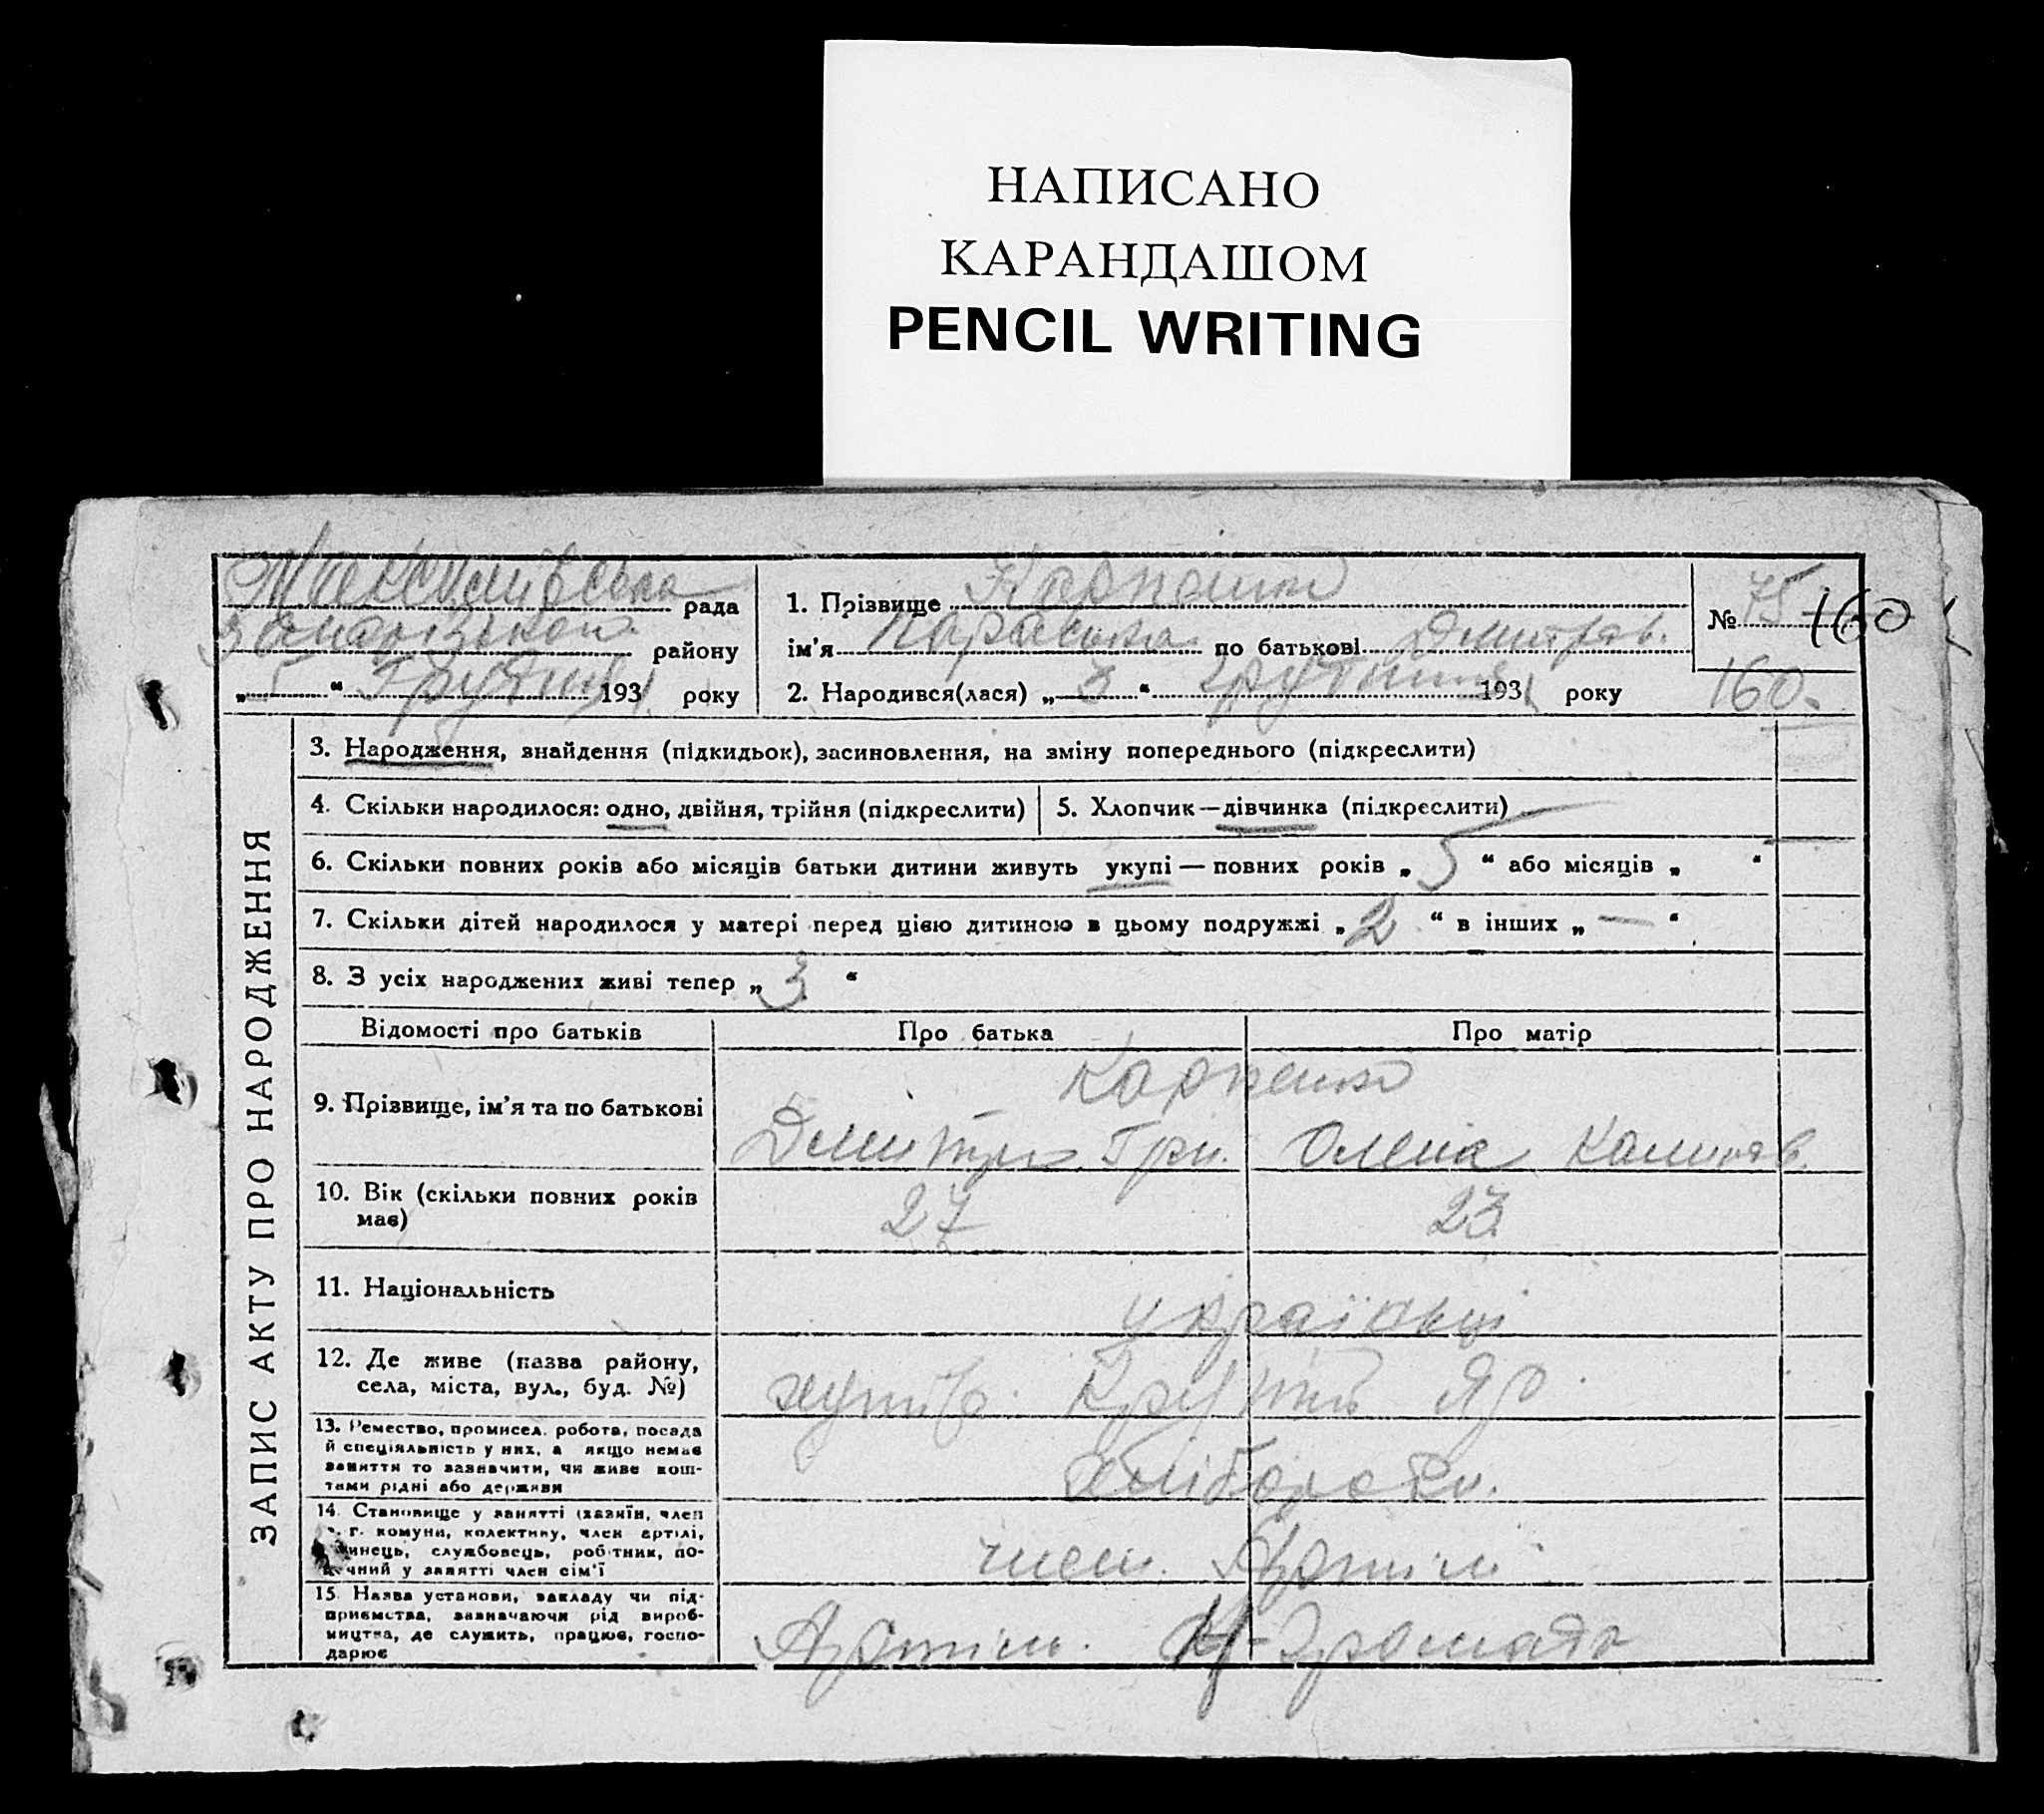 НАПИСАНО
КАРАНДАШОМ
PENCIL WRITING
Максимівська рада
району
„ “ Грудня 1931 року
1. Прізвище Карпенко
ім'я Параська по батькові Дмитрів.
2. Народився(лася) „3“ грудня 1931 року
№ 75 160
160.
ЗАПИС АКТУ ПРО НАРОДЖЕННЯ
3. Народження, знайдення (підкидьок), засиновлення, на зміну попереднього (підкреслити)
4. Скільки народилося: одно, двійня, трійня (підкреслити)
5. Хлопчик—дівчинка (підкреслити)
6. Скільки повних років або місяців батьки дитини живуть укупі — повних років „5“ або місяців „ “
7. Скільки дітей народилося у матері перед цією дитиною в цьому подружжі „2“ в інших „—“
8. З усіх народжених живі тепер „3“
Відомості про батьків
Про батька
Про матір
9. Прізвище, ім'я та по батькові
Карпенко
Дмитро Гри.
Олена Калинів.
10. Вік (скільки повних років
має)
27
23
11. Національність
українці
12. Де живе (назва району,
села, міста, вул., буд. №)
хутір Крутий Яр.
13. Ремество, промисел, робота, посада
й спеціяльність у них, а якщо немає
заняття то зазначити, чи живе кош-
тами рідні або держави
хлібороби.
14. Становище у занятті (хазяїн, член
с. г. комуни, колективу, член артілі,
службовець, робітник, по-
чний у занятті член сім'ї
член Артіли
15. Назва установи, закладу чи під-
приємства, зазначаючи рід вироб-
ництва, де служить, працює, госпо-
дарює
Артіль Громада